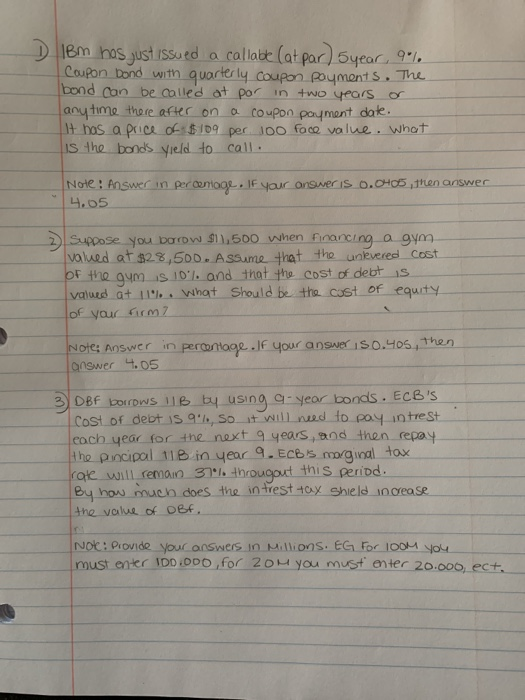 1) IBm has just issued a callable (at par) 5 year, 9%
Coupon bond with quarterly coupon payments. The
bond can be called at par in two years or
anytime there after on a coupon payment date.
It has a price of $109 per 100 face value. What
is the bonds yield to call.
Note: Answer in percentage. If your answer is 0.0405, then answer
4.05
2) Suppose you borrow $11,500 when financing a gym
valued at $28,500. Assume that the unlevered cost
of the gym is 10% and that the cost of debt is
valued at 11%. What should be the cost of equity
of your firm?
Note: Answer in percentage. If your answer is 0.405, then
answer 4.05
3) DBF borrows 11B by using 9-year bonds. ECB's
cost of debt is 9%, so it will need to pay intrest
each year for the next 9 years, and then repay
the principal 11B in year 9. ECB's marginal tax
rate will remain 37% througout this period.
By how much does the intrest tax shield increase
the value of DBf.
Note: Provide your answers in Millions. EG For 100M you
must enter 100.000, for 20M you must enter 20.000, ect.